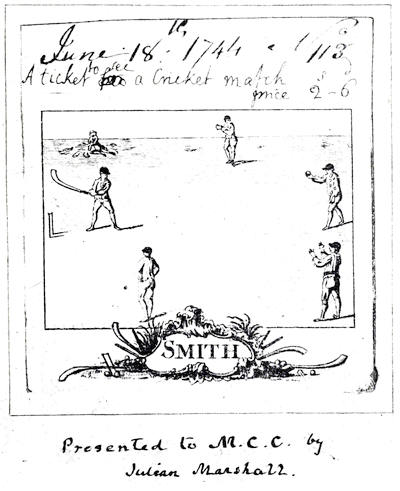 June 18th 1744 113
A ticket to see a Cricket match
price 2-6
SMITH
Presented to M.C.C. by
Julian Marshall.